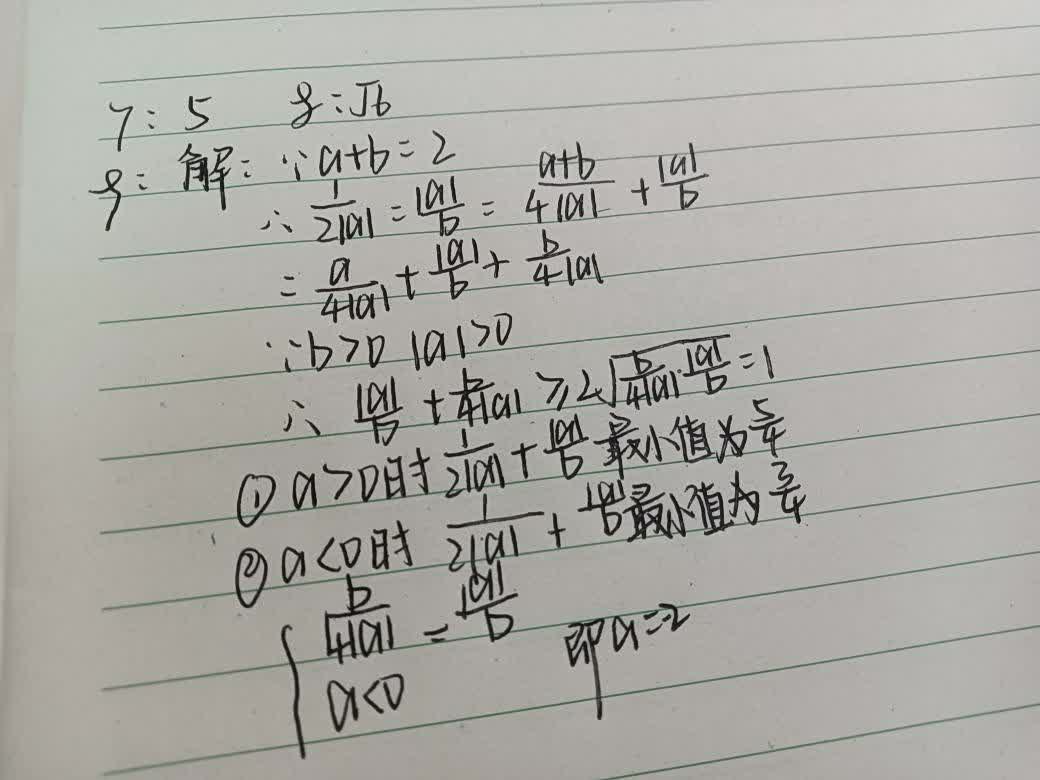 7: 5 8:√6
9: 解: ∵a+b=2
∴ 1/2|a| = |a|/b = a+b/4|a| + |a|/b
= a/4|a| + |a|/b + b/4|a|
∵b>0 |a|>0
∴ |a|/b + b/4|a| ≥ 2√(b/4|a| · |a|/b) = 1
① a>0时 1/2|a| + |a|/b 最小值为 5/4
② a<0时 1/2|a| + |a|/b 最小值为 3/4
{ b/4|a| = |a|/b 即a=-2
a<0